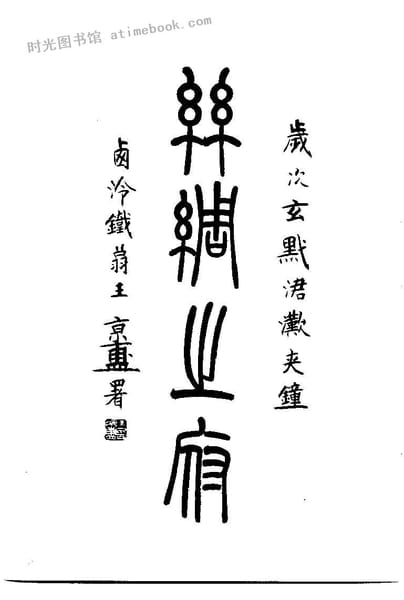 时光图书馆 atimebook.com
歲次玄黓涒灘夾鐘
絲綢之府
鹵泠鐵翁王京盙署